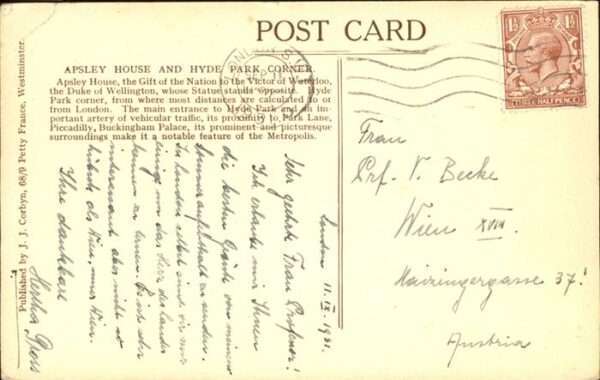 POST CARD
APSLEY HOUSE AND HYDE PARK CORNER.
Apsley House, the Gift of the Nation to the Victor of Waterloo,
the Duke of Wellington, whose Statue stands opposite. Hyde
Park corner, from where most distances are calculated to or
from London. The main entrance to Hyde Park and an im-
portant artery of vehicular traffic, its proximity to Park Lane,
Piccadilly, Buckingham Palace, its prominent and picturesque
surroundings make it a notable feature of the Metropolis.
Published by J. J. Corbyn, 68/9 Petty France, Westminster.
London 11. IX. 1931.
Sehr geehrte Frau Professor!
Ich erlaube mir Ihnen
die besten Grüße von meinem
Sommeraufenthalt zu senden.
In London selbst sind wir nur
einige um das Herz des Landes
kennen zu lernen. Es ist sehr
interessant aber nicht so
hübsch als Wien, unser Wien.
Ihre dankbare
Hertha Gross
Frau
Prf. V. Becke
Wien XVIII.
Haizingergasse 37.
Austria
1½ 1½
THREE HALFPENCE